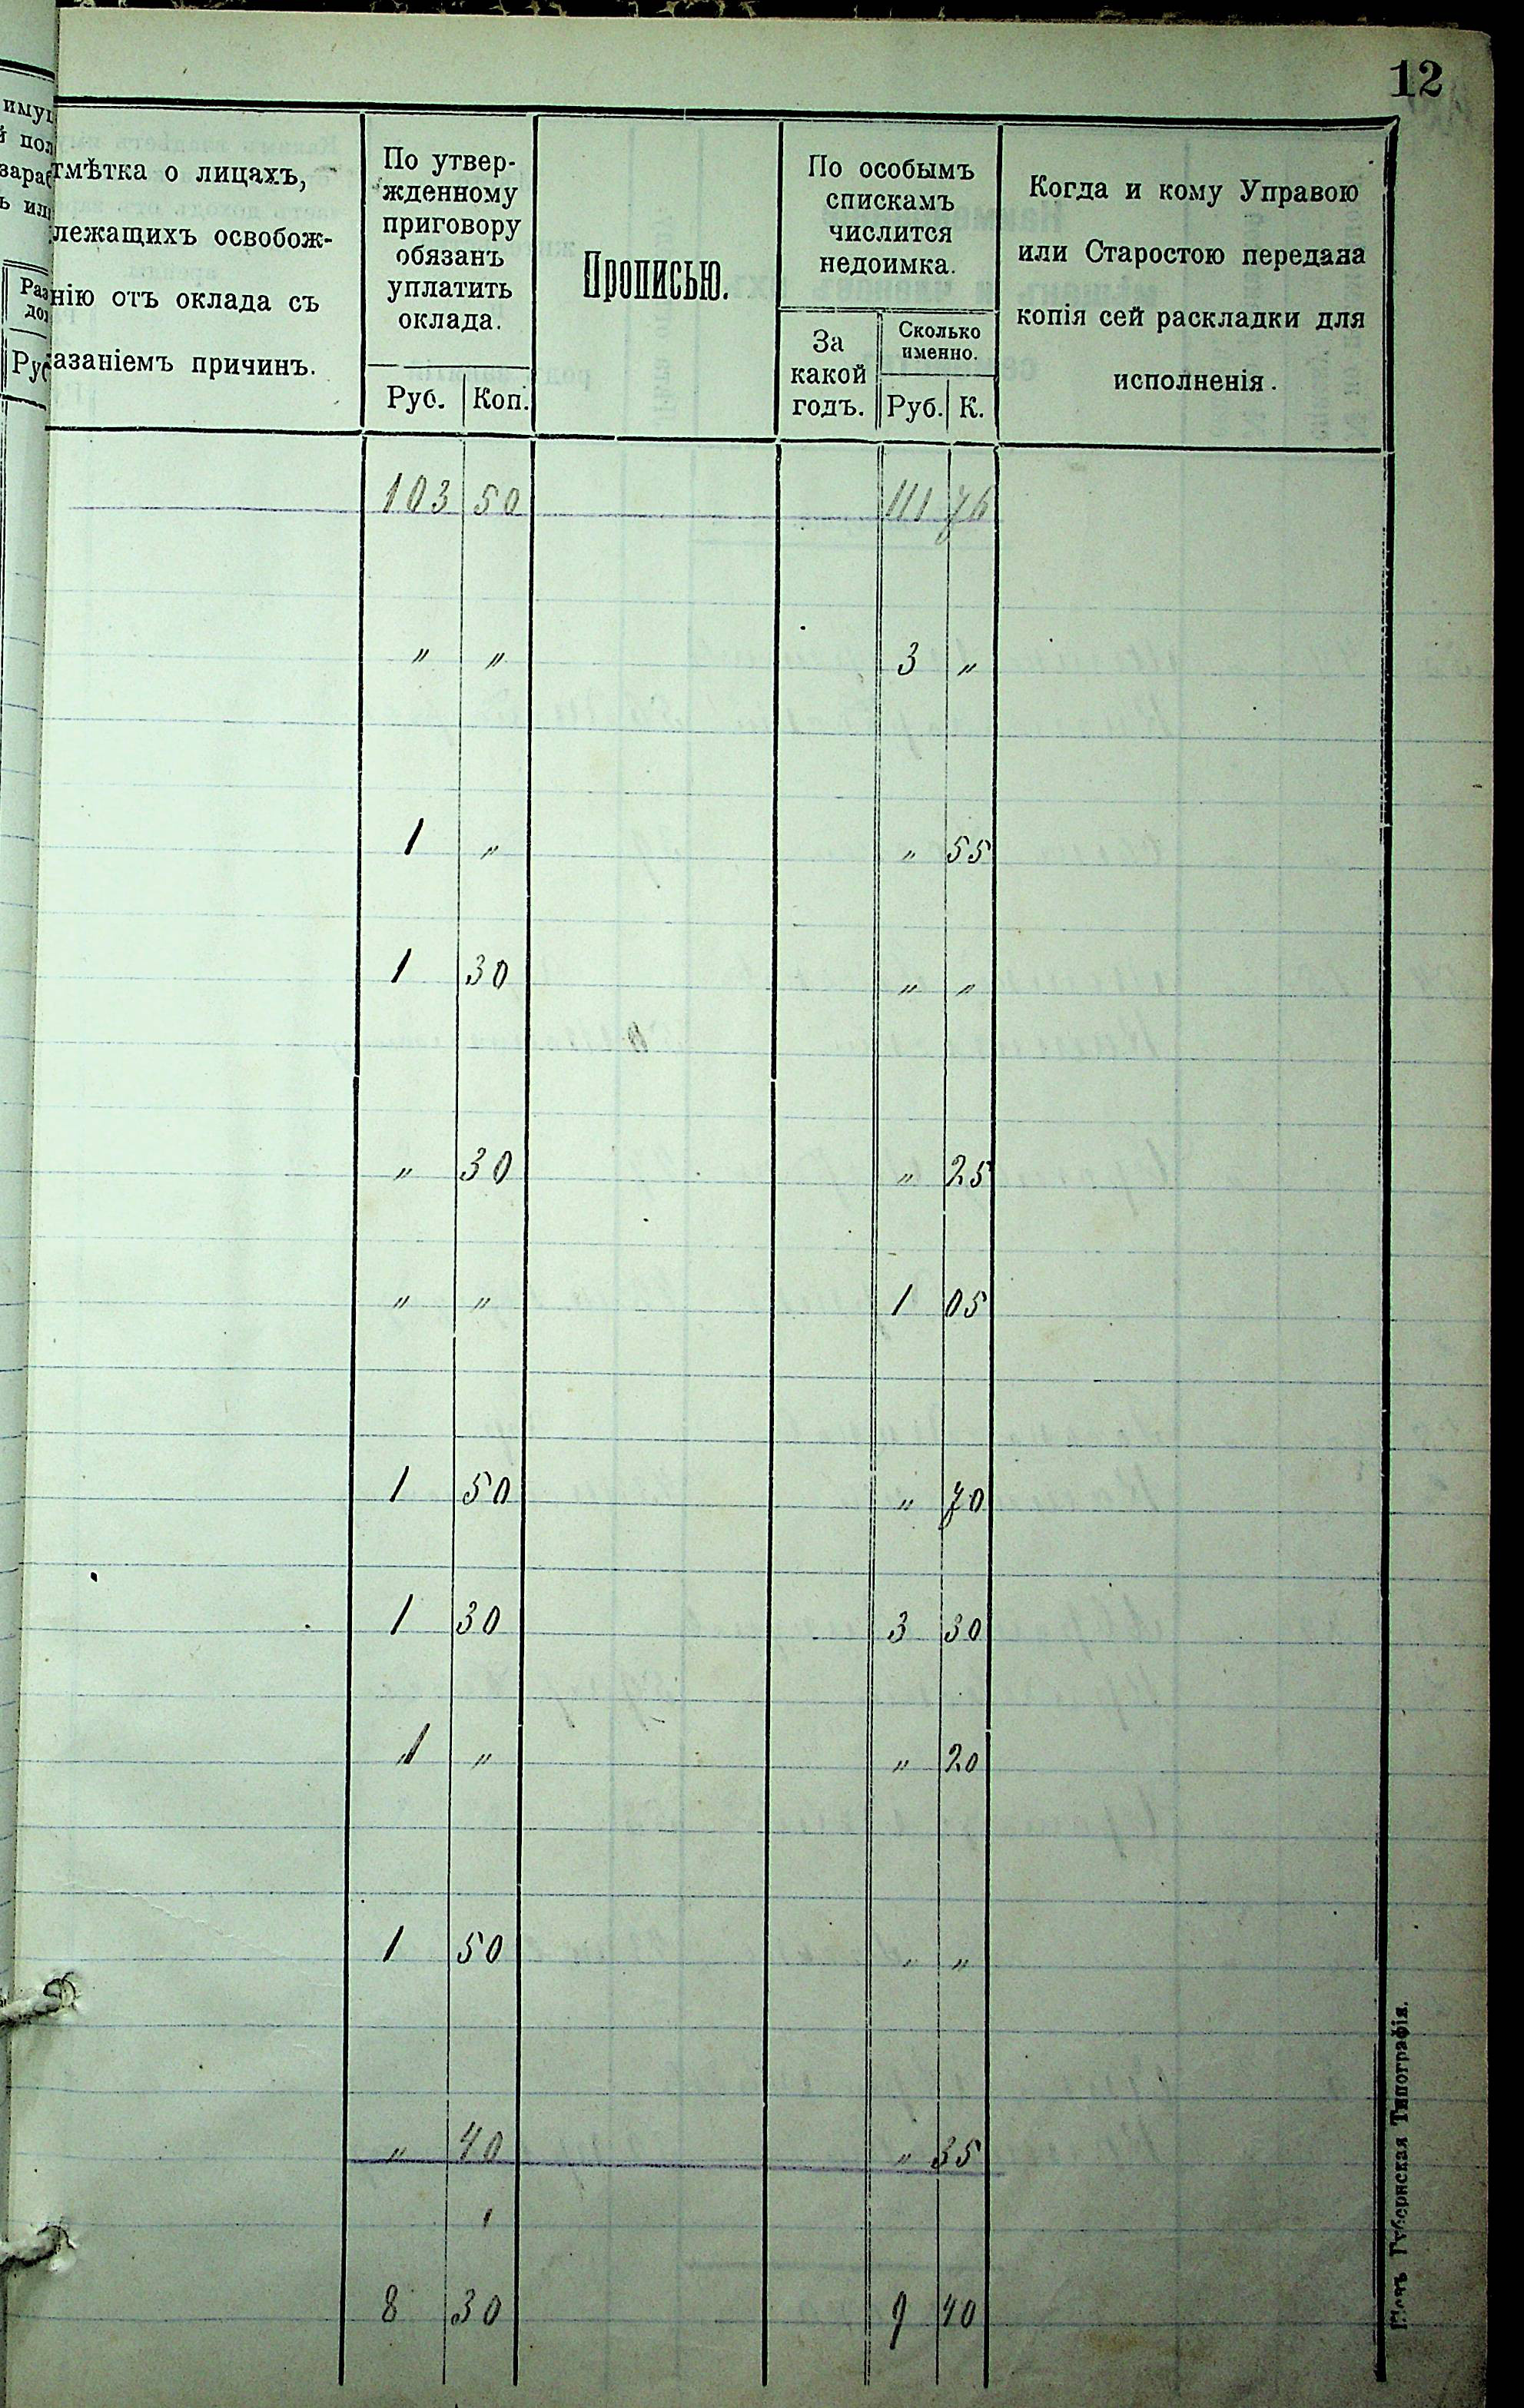 12
иму
й пол
зараб
ь ил
Раз
до
Руб
тмѣтка о лицахъ,
лежащихъ освобож-
нію отъ оклада съ
азаніемъ причинъ.
По утвер-
жденному
приговору
обязанъ
уплатить
оклада.
Руб. Коп.
Прописью.
По особымъ
спискамъ
числится
недоимка.
За
какой
годъ.
Сколько
именно.
Руб. К.
Когда и кому Управою
или Старостою передана
копія сей раскладки для
исполненія.
103 50 111 76
" " 3 "
1 " " 55
1 30 " "
" 30 " 25
" " 1 05
1 50 " 70
1 30 3 30
1 " " 20
1 50 " "
" 40 " 35
8 30 9 40
Губернская Типографія.